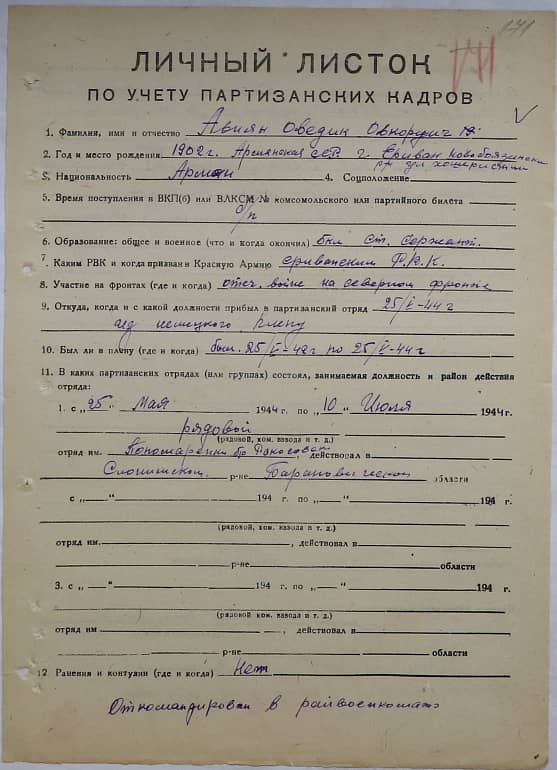 171
ЛИЧНЫЙ ЛИСТОК
ПО УЧЕТУ ПАРТИЗАНСКИХ КАДРОВ
1. Фамилия, имя и отчество Авиян Оведик
2. Год и место рождения 1902 г. Армянская ССР. г. Ериван
3. Национальность Армян 4. Соцположение
5. Время поступления в ВКП(б) или ВЛКСМ № комсомольского или партийного билета
б/п
6. Образование: общее и военное (что и когда окончил) 6кл Ст. Сержант.
7. Каким РВК и когда призван в Красную Армию ериванский Р.В.К.
8. Участие на фронтах (где и когда) отеч. войне на северном фронте
9. Откуда, и с какой должности прибыл в партизанский отряд 25/V-44 г
из немецкого плену
10. Был ли в плену (где и когда) был. 25/V-42 г по 25/V-44 г
11. В каких партизанских отрядах (или группах) состоял, занимаемая должность и район действия
отряда:
1. с „25" Мая 1944 г. по „10" Июля 1944 г.
рядовой
(рядовой, ком. взвода и т. д.)
отряд им. Пономаренки бр. действовал в
р-не Барановической области
с „ " 194 г. по „ " 194 г.
(рядовой, ком. взвода и т. д.)
отряд им. , действовал в
р-не области
3. с „ " 194 г. по „ " 194 г.
(рядовой, ком. взвода и т. д.)
отряд им , действовал в
р-не области
12 Ранения и контузии (где и когда) Нет
Откомандирован в райвоенкомат